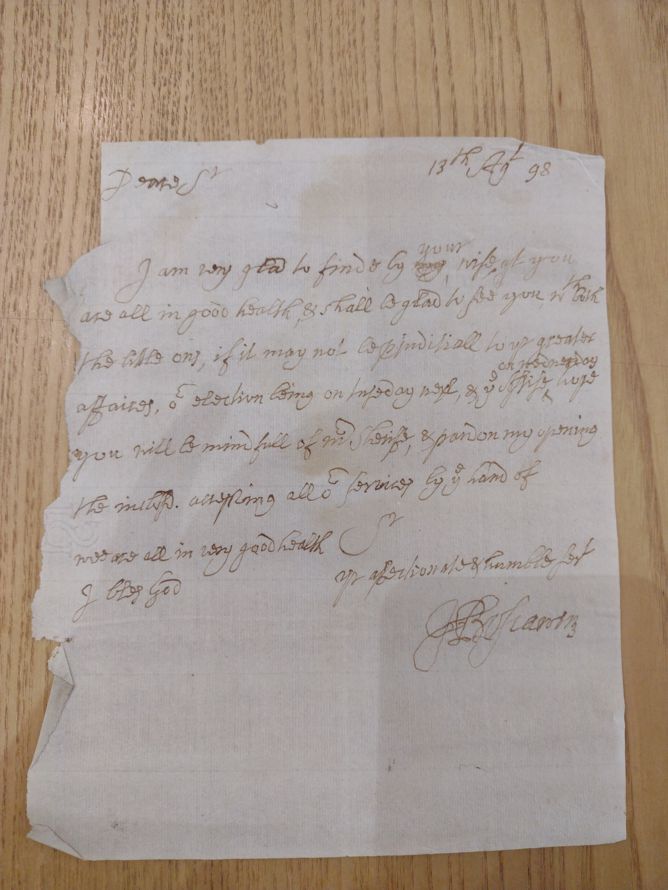 Deare Sr 13th Agt 98
I am very glad to finde by your wife yt you
are all in good health, & shall be glad to see you wth both
the litle ons, if it may not be prjuditiall to yr greater
on wednesday
affaires, or election being on tuseday next, & ye I hope
you will be mindfull of mr & pardon my opening
the inclosd. accepting all or services by ye hand of
Sr
wee are all in very good health
I bles God
yr affectionate & humble sert